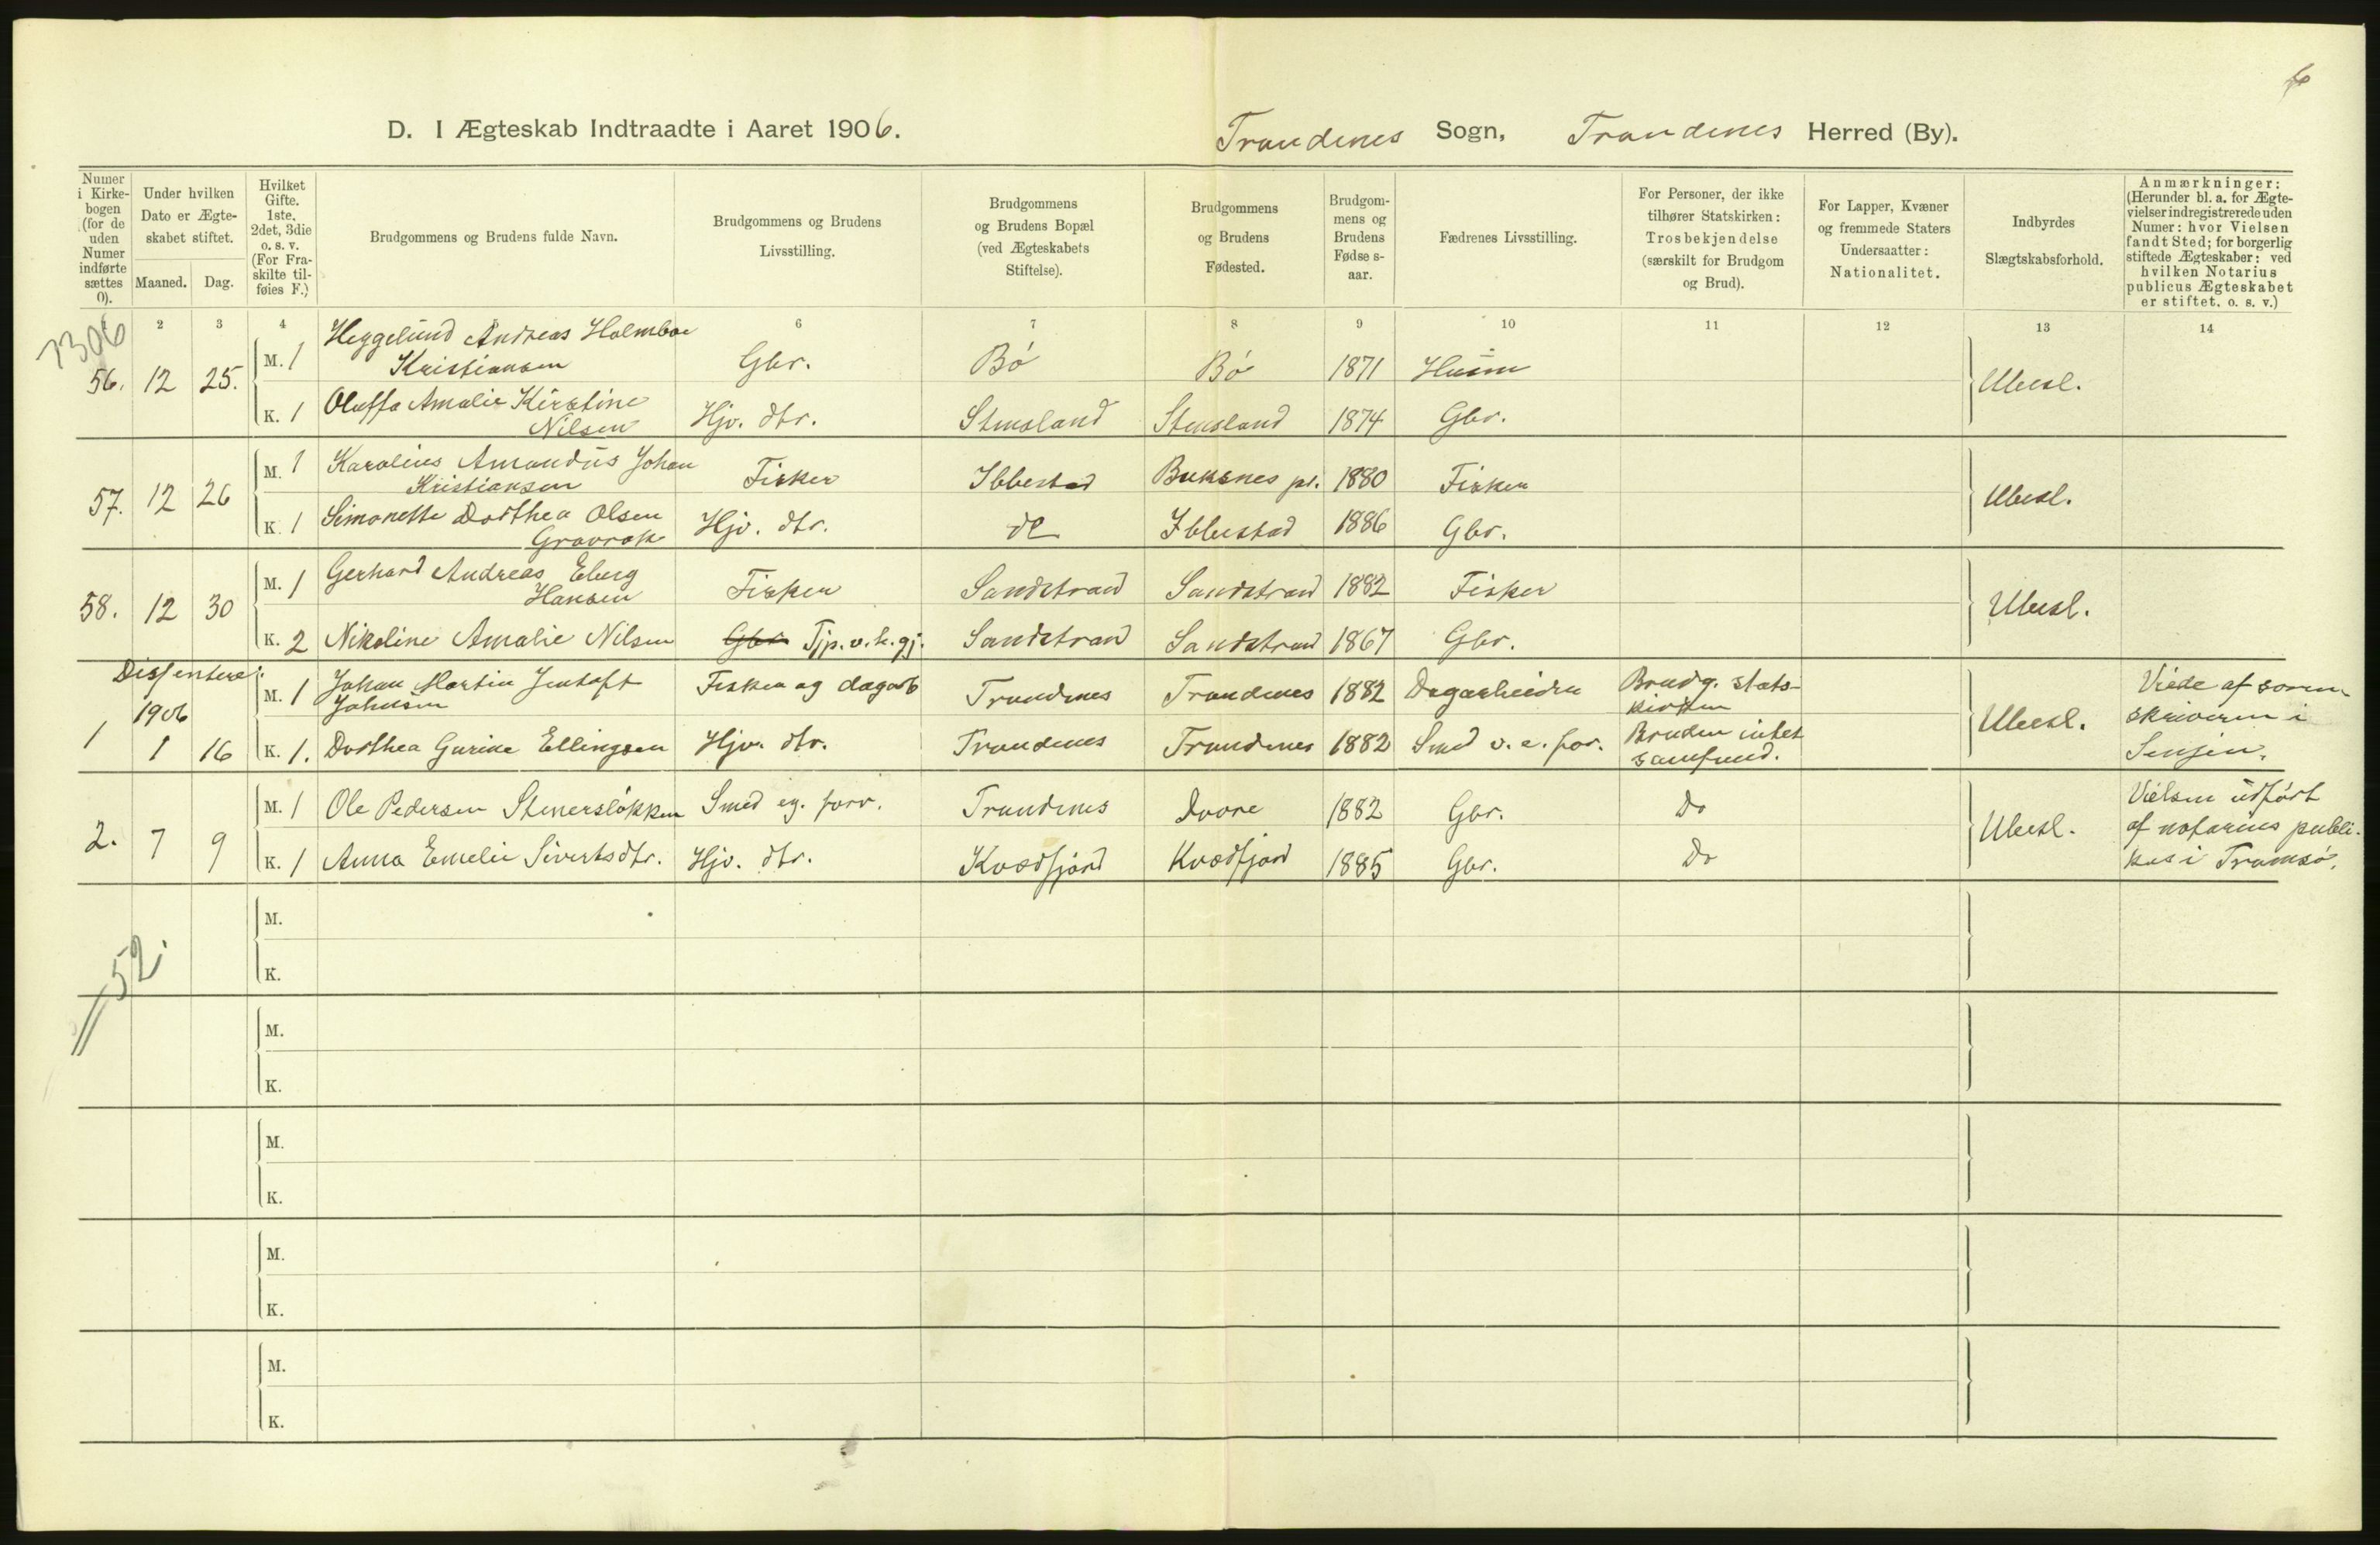 6
D. I Ægteskab Indtraadte i Aaret 1906. Trondenes Sogn, Trondenes Herred (By).
Numer i Kirkebogen (for de uden Numer indførte sættes 0).
Under hvilken Dato er Ægteskabet stiftet.
Maaned. Dag.
Hvilket Gifte. 1ste, 2det, 3die o. s. v. (For Fraskilte tilføies F.)
Brudgommens og Brudens fulde Navn.
Brudgommens og Brudens Livsstilling.
Brudgommens og Brudens Bopæl (ved Ægteskabets Stiftelse).
Brudgommens og Brudens Fødested.
Brudgommens og Brudens Fødselsaar.
Fædrenes Livsstilling.
For Personer, der ikke tilhører Statskirken: Trosbekjendelse (særskilt for Brudgom og Brud).
For Lapper, Kvæner og fremmede Staters Undersaatter: Nationalitet.
Indbyrdes Slægtskabsforhold.
Anmærkninger: (Herunder bl. a. for Ægtevielser indregistrerede uden Numer: hvor Vielsen fandt Sted; for borgerlig stiftede Ægteskaber: ved hvilken Notarius publicus Ægteskabet er stiftet, o. s. v.)
2 3 4 6 7 8 9 10 11 12 13 14
7306
56. 12 25. M. 1 Heggelund Andreas Holmboe Kristiansen Gbr. Bö Bö 1871 Husm Ubesl.
K. 1 Oluffa Amalie Kirstine Nilsen Hjv. dtr. Stensland Stensland 1874 Gbr.
57. 12 26 M. 1 Karolius Amandus Johan Kristiansen Fisker Ibbestad Buksnes pr. 1880 Fisker Ubesl.
K. 1 Simonette Dorthea Olsen Gravrok Hjv. dtr. do Ibbestad 1886 Gbr.
58. 12 30 M. 1 Gerhard Andreas Eberg Hansen Fisker Sandstrand Sandstrand 1882 Fisker Ubesl.
K. 2 Nikoline Amalie Nilsen Gbr Tjp. v. h. gj. Sandstrand Sandstrand 1867 Gbr.
Dissentere:
1906
1 1 16 M. 1 Johan Martin Jentoft Johnsen Fisker og dagarb Trondenes Trondenes 1882 Dagarbeider Brudg. statskirken Ubesl. Viede af sorenskriveren i Senjen.
K. 1. Dorthea Gurine Ellingsen Hjv. dtr. Trondenes Trondenes 1882 Smed v. e. for. Bruden intet samfund.
2. 7 9 M. 1 Ole Pedersen Stenersløkken Smed eg. forr. Trondenes Dovre 1882 Gbr. Do Ubesl. Vielsen udført af notarius publikus i Tromsø.
K. 1 Anna Emelie Sivertsdtr. Hjv. dtr. Kvædfjord Kvædfjord 1885 Gbr. Do
M.
K.
52.
M.
K.
M.
K.
M.
K.
M.
K.